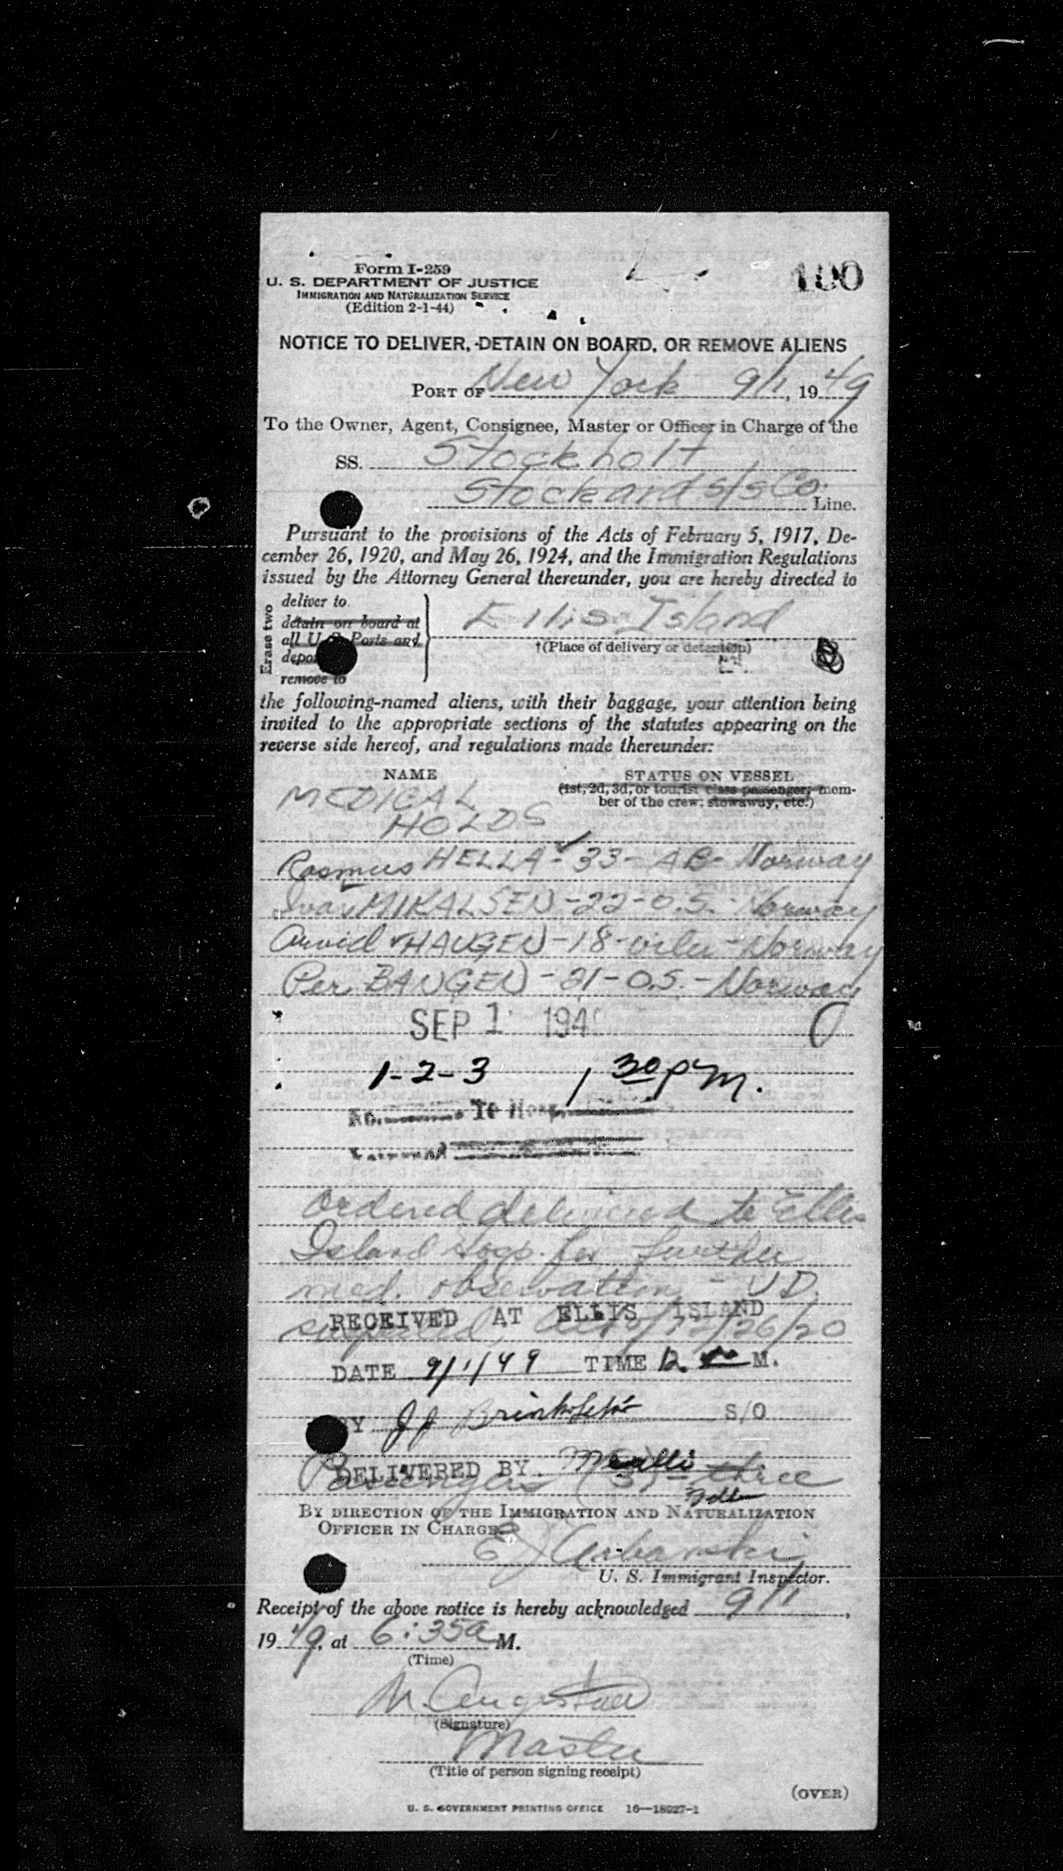 Form I-259
U. S. DEPARTMENT OF JUSTICE
IMMIGRATION AND NATURALIZATION SERVICE
(Edition 2-1-44)
100
NOTICE TO DELIVER, DETAIN ON BOARD, OR REMOVE ALIENS
PORT OF New York 9/1, 1949
To the Owner, Agent, Consignee, Master or Officer in Charge of the
SS. Stockholt
Stockard S/S Co. Line.
Pursuant to the provisions of the Acts of February 5, 1917, De-
cember 26, 1920, and May 26, 1924, and the Immigration Regulations
issued by the Attorney General thereunder, you are hereby directed to
Erase two
deliver to
detain on board at
all U. S. Ports and
remove to
Ellis Island
†(Place of delivery or detention)
the following-named aliens, with their baggage, your attention being
invited to the appropriate sections of the statutes appearing on the
reverse side hereof, and regulations made thereunder:
NAME
STATUS ON VESSEL
(1st, 2d, 3d, or tourist class passenger; mem-
ber of the crew; stowaway, etc.)
MEDICAL
HOLDS
Rasmus HELLA - 33 - AB - Norway
Ivar MIKALSEN - 22 - O.S. - Norway
Arvid HAUGEN - 18 - oiler - Norway
Per BANGEN - 21 - O.S. - Norway
SEP 1 194
1-2-3 1 30 P M.
No. To Hosp.
Ordered delivered to Ellis
Island Hosp. for further
med. observation - V D.
RECEIVED AT ELLIS ISLAND
DATE 9/1/49 TIME 12 M.
BY J J S/O
DELIVERED BY
Passengers (3) three
BY DIRECTION OF THE IMMIGRATION AND NATURALIZATION
OFFICER IN CHARGE.
E J Urbanski
U. S. Immigrant Inspector.
Receipt of the above notice is hereby acknowledged 9/1,
1949, at 6:35a M.
(Time)
(Signature)
Master
(Title of person signing receipt)
(OVER)
U. S. GOVERNMENT PRINTING OFFICE 16—18027-1